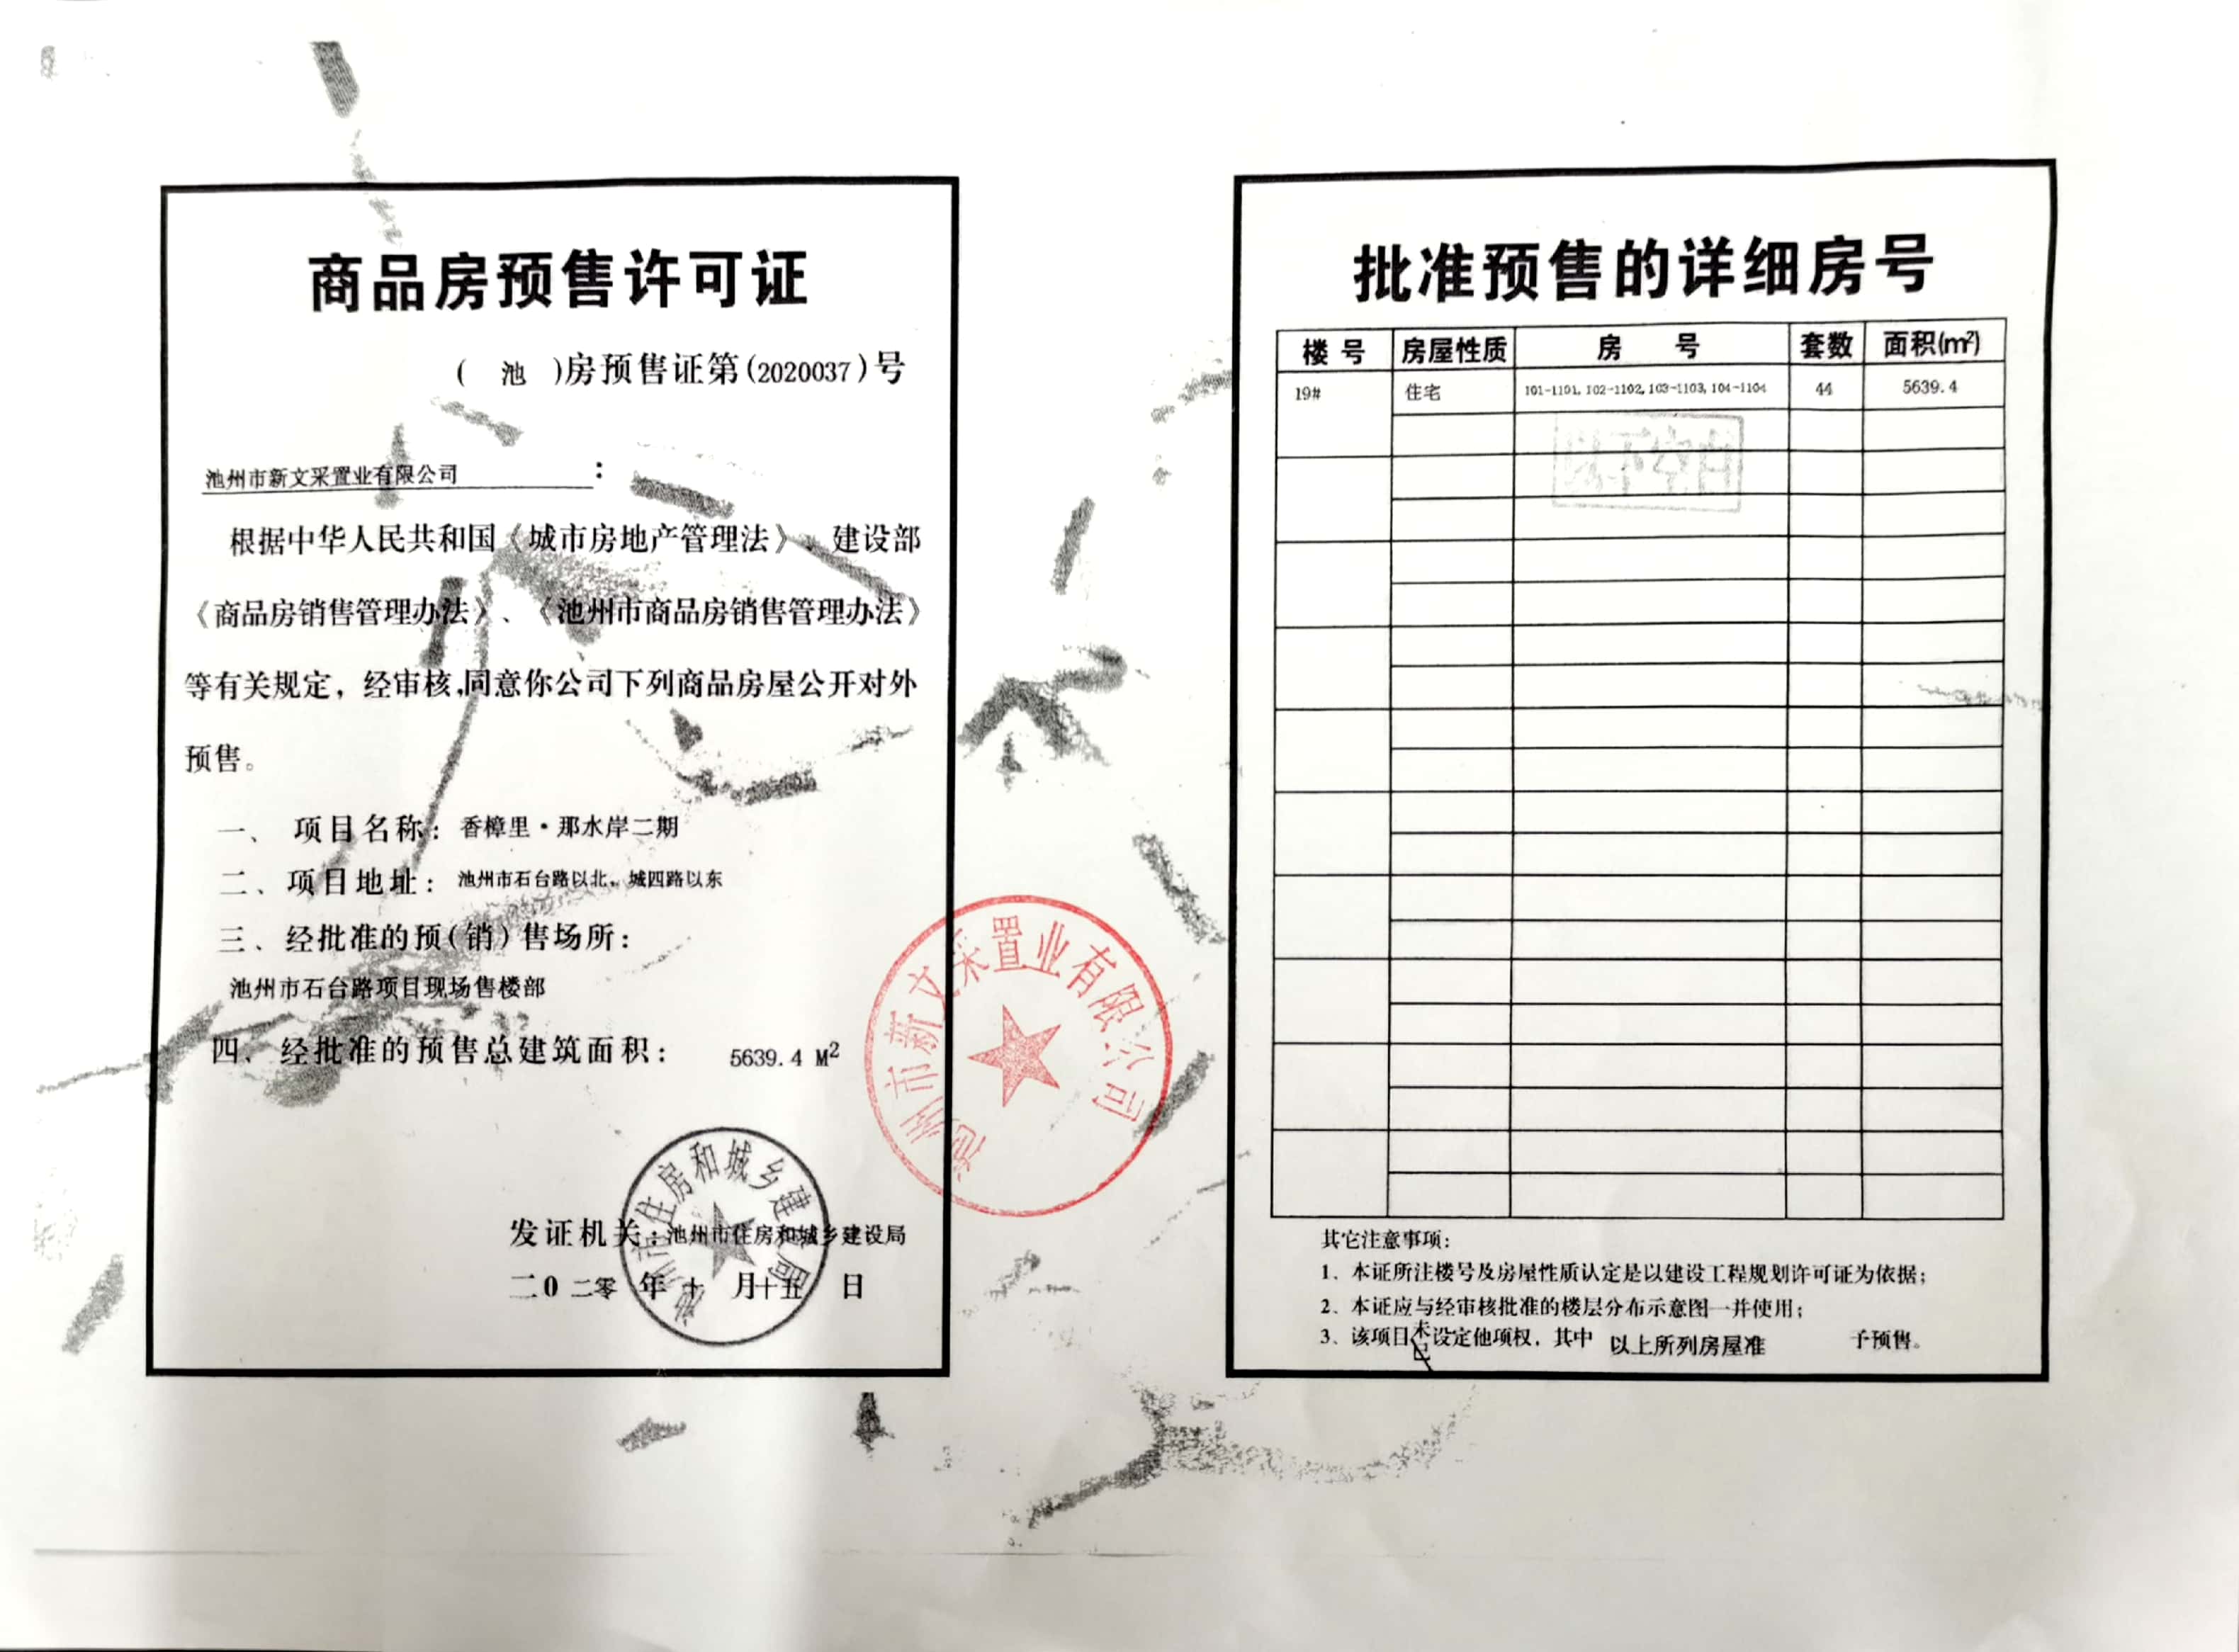 商品房预售许可证
( 池 )房预售证第(2020037)号
池州市新文采置业有限公司:
根据中华人民共和国《城市房地产管理法》、建设部
《商品房销售管理办法》、《池州市商品房销售管理办法》
等有关规定，经审核,同意你公司下列商品房屋公开对外
预售。
一、项目名称: 香樟里·那水岸二期
二、项目地址: 池州市石台路以北、城四路以东
三、经批准的预(销)售场所:
池州市石台路项目现场售楼部
四、经批准的预售总建筑面积: 5639.4 M²
发证机关: 池州市住房和城乡建设局
二0二零年十月十五日
池州市住房和城乡建设局
池州市新文采置业有限公司
批准预售的详细房号
楼号 房屋性质 房号 套数 面积(m²)
19# 住宅 101-1101,102-1102,103-1103,104-1104 44 5639.4
以下空白
其它注意事项:
1、本证所注楼号及房屋性质认定是以建设工程规划许可证为依据;
2、本证应与经审核批准的楼层分布示意图一并使用;
3、该项目未已设定他项权，其中 以上所列房屋准 予预售。